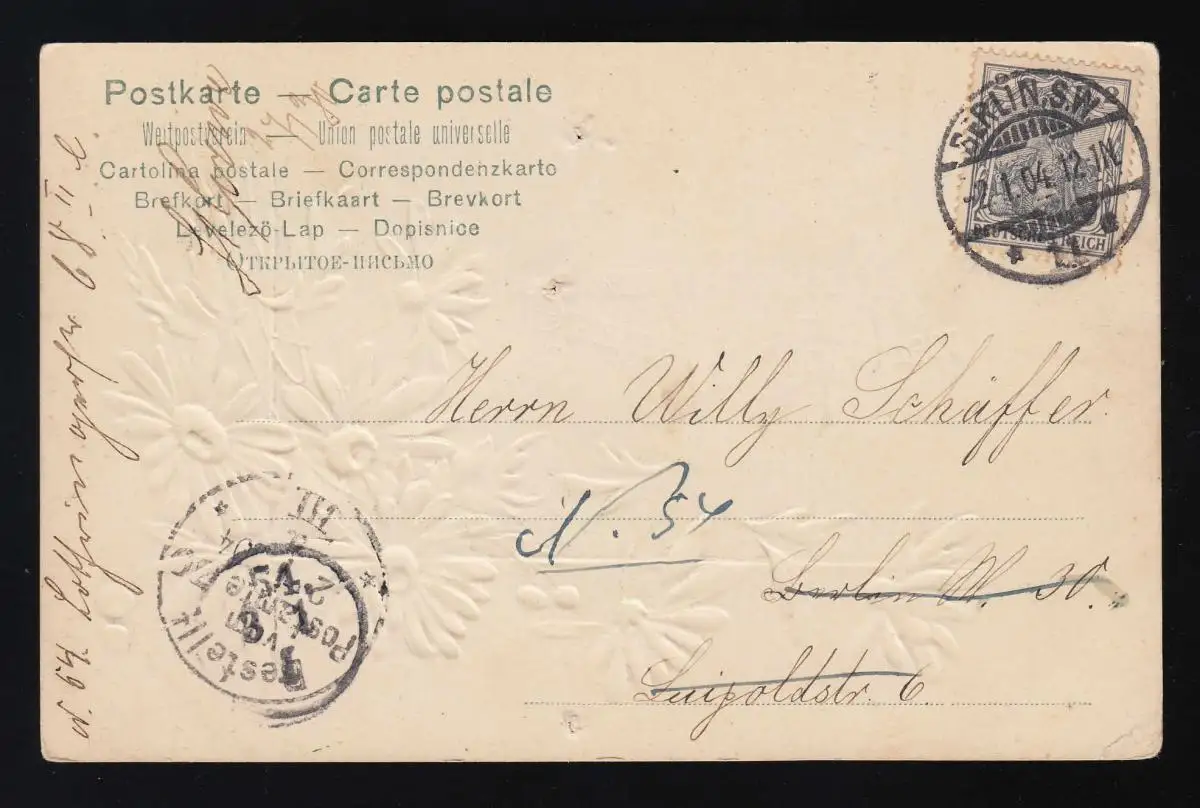 Postkarte — Carte postale
Weltpostverein — Union postale universelle
Cartolina postale — Correspondenzkarto
Brefkort — Briefkaart — Brevkort
Levelezö-Lap — Dopisnice
Открытое-письмо
BERLIN, S.W.
-2.1.04. 12-1N.
DEUTSCHES REICH
Herrn Willy Schäffer
N. 54
Berlin W. 30.
Luipoldstr. 6
N. 54. Lothringerstr 68 II
Bestellt
vom
Postamte
54